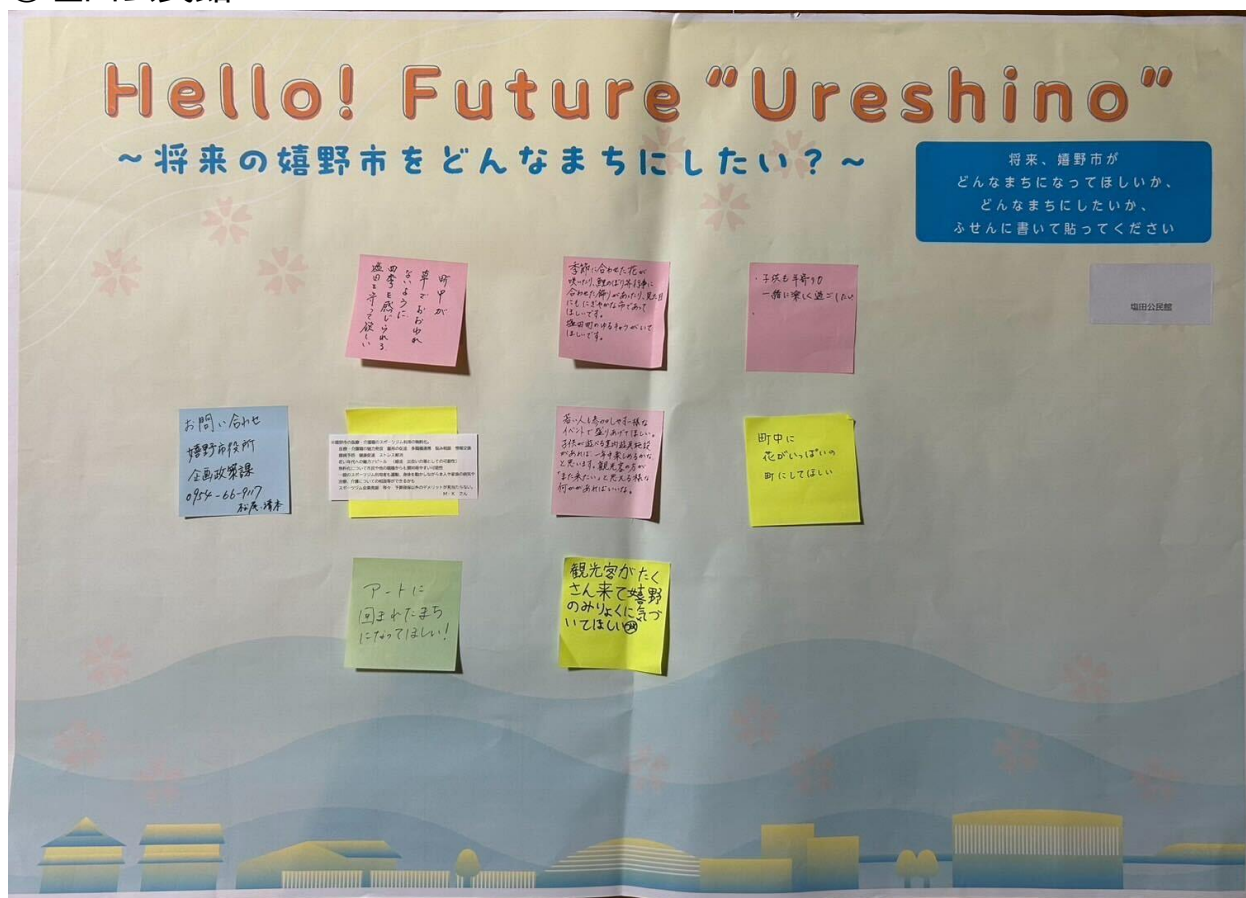 Hello! Future “Ureshino”
~将来の嬉野市をどんなまちにしたい？~
将来、嬉野市が
どんなまちになってほしいか、
どんなまちにしたいか、
ふせんに書いて貼ってください
塩田公民館
町中が
草でおおわれ
ないように、
四季を感じられる
塩田を守って欲しい
季節に合わせた花が
咲いたり、鯉のぼり等行事に
合わせた飾りがあったり、見た目
にもにぎやかな市であって
ほしいです。
塩田町のゆるキャラがいて
ほしいです。
・子供も年寄りも
一緒に楽しく過ごしたい
お問い合わせ
嬉野市役所
企画政策課
0954-66-9117
若い人も参加しやすい様な
イベントで盛りあげてほしい。
子供が遊べる室内遊具施設
があれば一年中楽しめるかな
と思います。観光客の方が
「また来たい」と思える様な
何かがあればいいな。
町中に
花がいっぱいの
町にしてほしい
アートに
囲まれたまち
になってほしい！
観光客がたく
さん来て嬉野
のみりょくに気づ
いてほしい